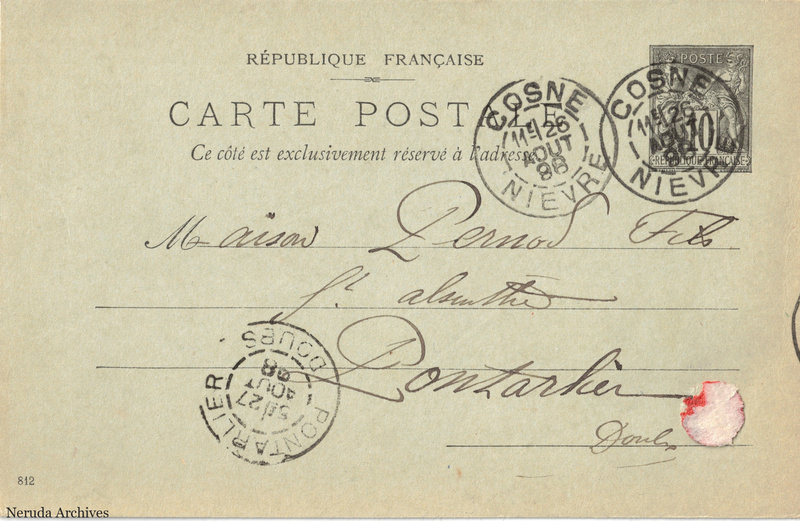 RÉPUBLIQUE FRANÇAISE
CARTE POSTALE
Ce côté est exclusivement réservé à l'adresse
POSTE
10
RÉPUBLIQUE FRANÇAISE
COSNE
11E 26
AOUT
98
NIEVRE
COSNE
11E 26
AOUT
98
NIEVRE
Maison Pernod Fils
absinthe
Pontarlier
Doubs
PONTARLIER
27
AOUT
98
DOUBS
812
Neruda Archives